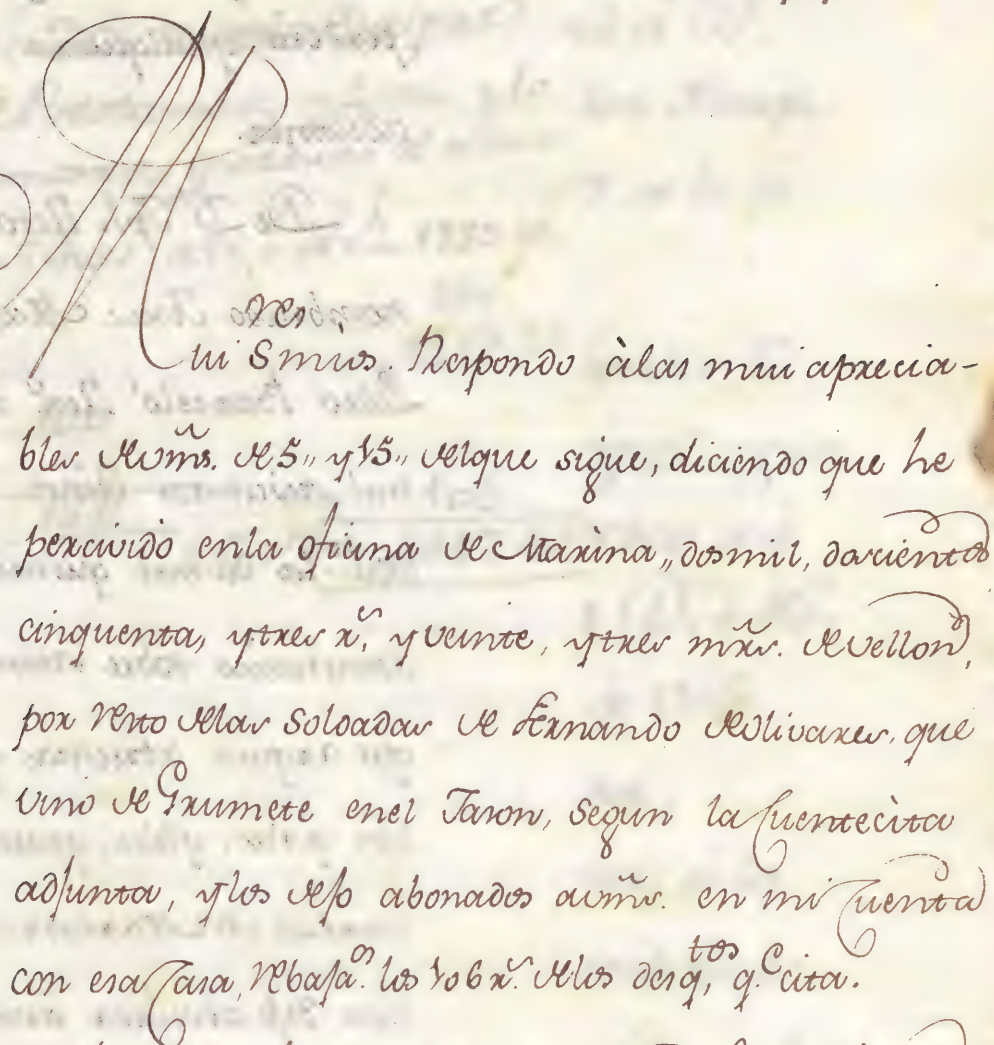 Mui S.res mios. Respondo àlas mui aprecia-
bles devms. de 5,, y 15,, delque sigue, diciendo que he
percivido enla oficina de Marina,, dosmil, docientos
cinquenta, ytres r.s, yveinte, ytres mrs. devellon,
por resto delas Soldadas de Fernando deOlivares, que
vino de Grumete enel Jason, segun la Cuentecita
adjunta, ylos dejo abonados avms. en mi Cuenta
con esa Casa, rebaja.os los 106 r.s delos desq.tos, q.e cita.